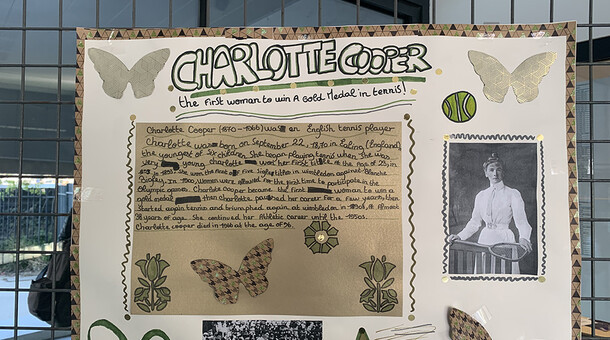 CHARLOTTE COOPER
the first woman to win A Gold Medal in tennis!
Charlotte Cooper (1870-1966) was en English tennis player
Charlotte was born on September 22, 1870 in Ealing (England)
the youngest of six children. She began playing tennis when she was
very young, charlotte won her first title at the age of 23, in
in 1893. She won the first of five singles titles in wimbledon against Blanche
Bingley. In 1900 women were allowed for the first time to participate in the
Olympic games. Charlotte Cooper became the first woman to win a
gold medal, then charlotte paused her career for a few years, then
started again tennis and triumphed again at wimbledon in 1908, at Almost
38 years of age. She continued her Athletic career until the 1950s.
Charlotte cooper died in 1966 at the age of 96.